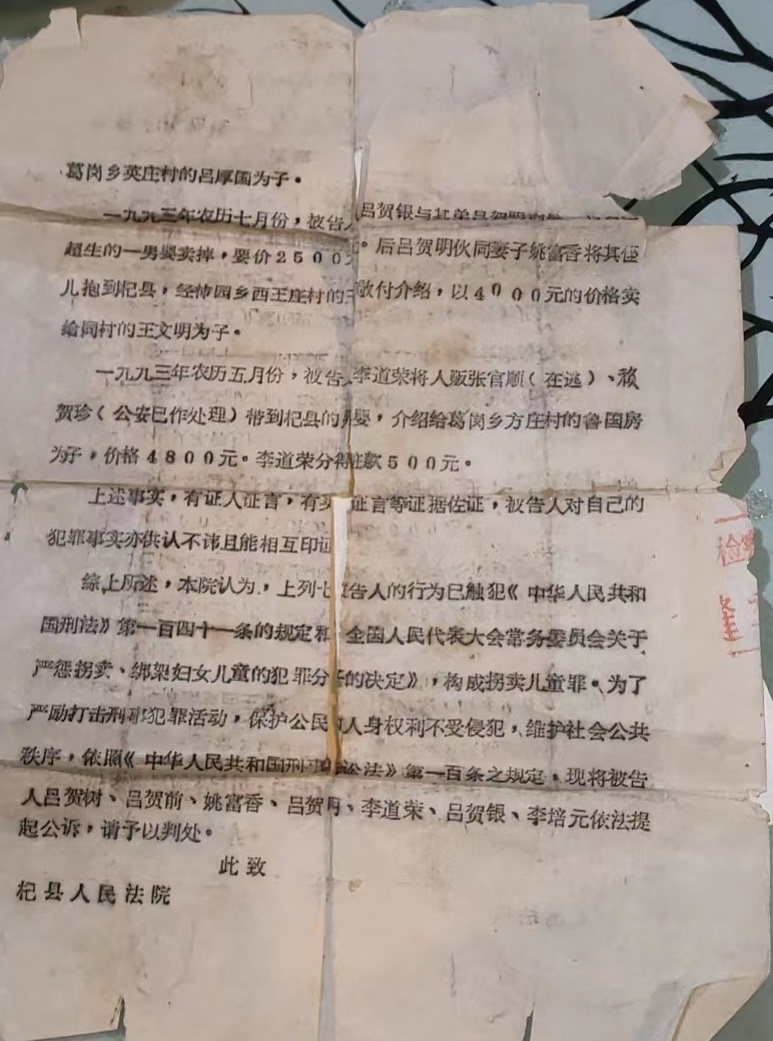 葛岗乡英庄村的吕厚国为子。
一九九三年农历七月份，被告人吕贺银与其弟吕贺明
超生的一男婴卖掉，要价2500元。后吕贺明伙同妻子姚富香将其侄
儿抱到杞县，经沛园乡西王庄村的王敬付介绍，以4000元的价格卖
给同村的王文明为子。
一九九三年农历五月份，被告人李道荣将人贩张官顺（在逃）、
贺珍（公安已作处理）带到杞县的男婴，介绍给葛岗乡方庄村的鲁国房
为子，价格4800元。李道荣分得赃款500元。
上述事实，有证人证言，有 证言等证据佐证，被告人对自己的
犯罪事实亦供认不讳且能相互印证
综上所述，本院认为，上列七被告人的行为已触犯《中华人民共和
国刑法》第一百四十一条的规定和 全国人民代表大会常务委员会关于
严惩拐卖、绑架妇女儿童的犯罪分子的决定》，构成拐卖儿童罪。为了
严励打击刑事犯罪活动，保护公民的人身权利不受侵犯，维护社会公共
秩序，依照《中华人民共和国刑事诉讼法》第一百条之规定，现将被告
人吕贺树、吕贺前、姚富香、吕贺明、李道荣、吕贺银、李培元依法提
起公诉，请予以判处。
此致
杞县人民法院
检